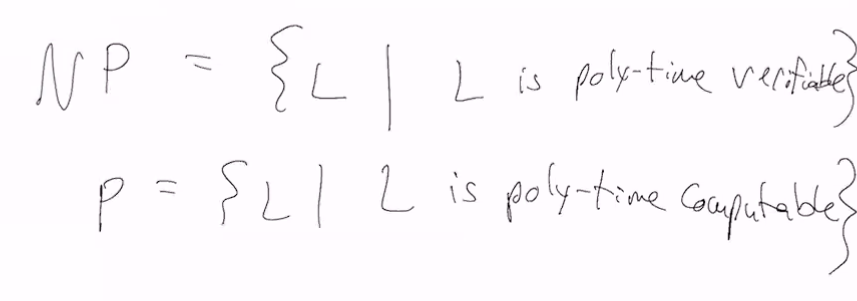 NP = {L | L is poly-time verifiable}
P = {L | L is poly-time computable}